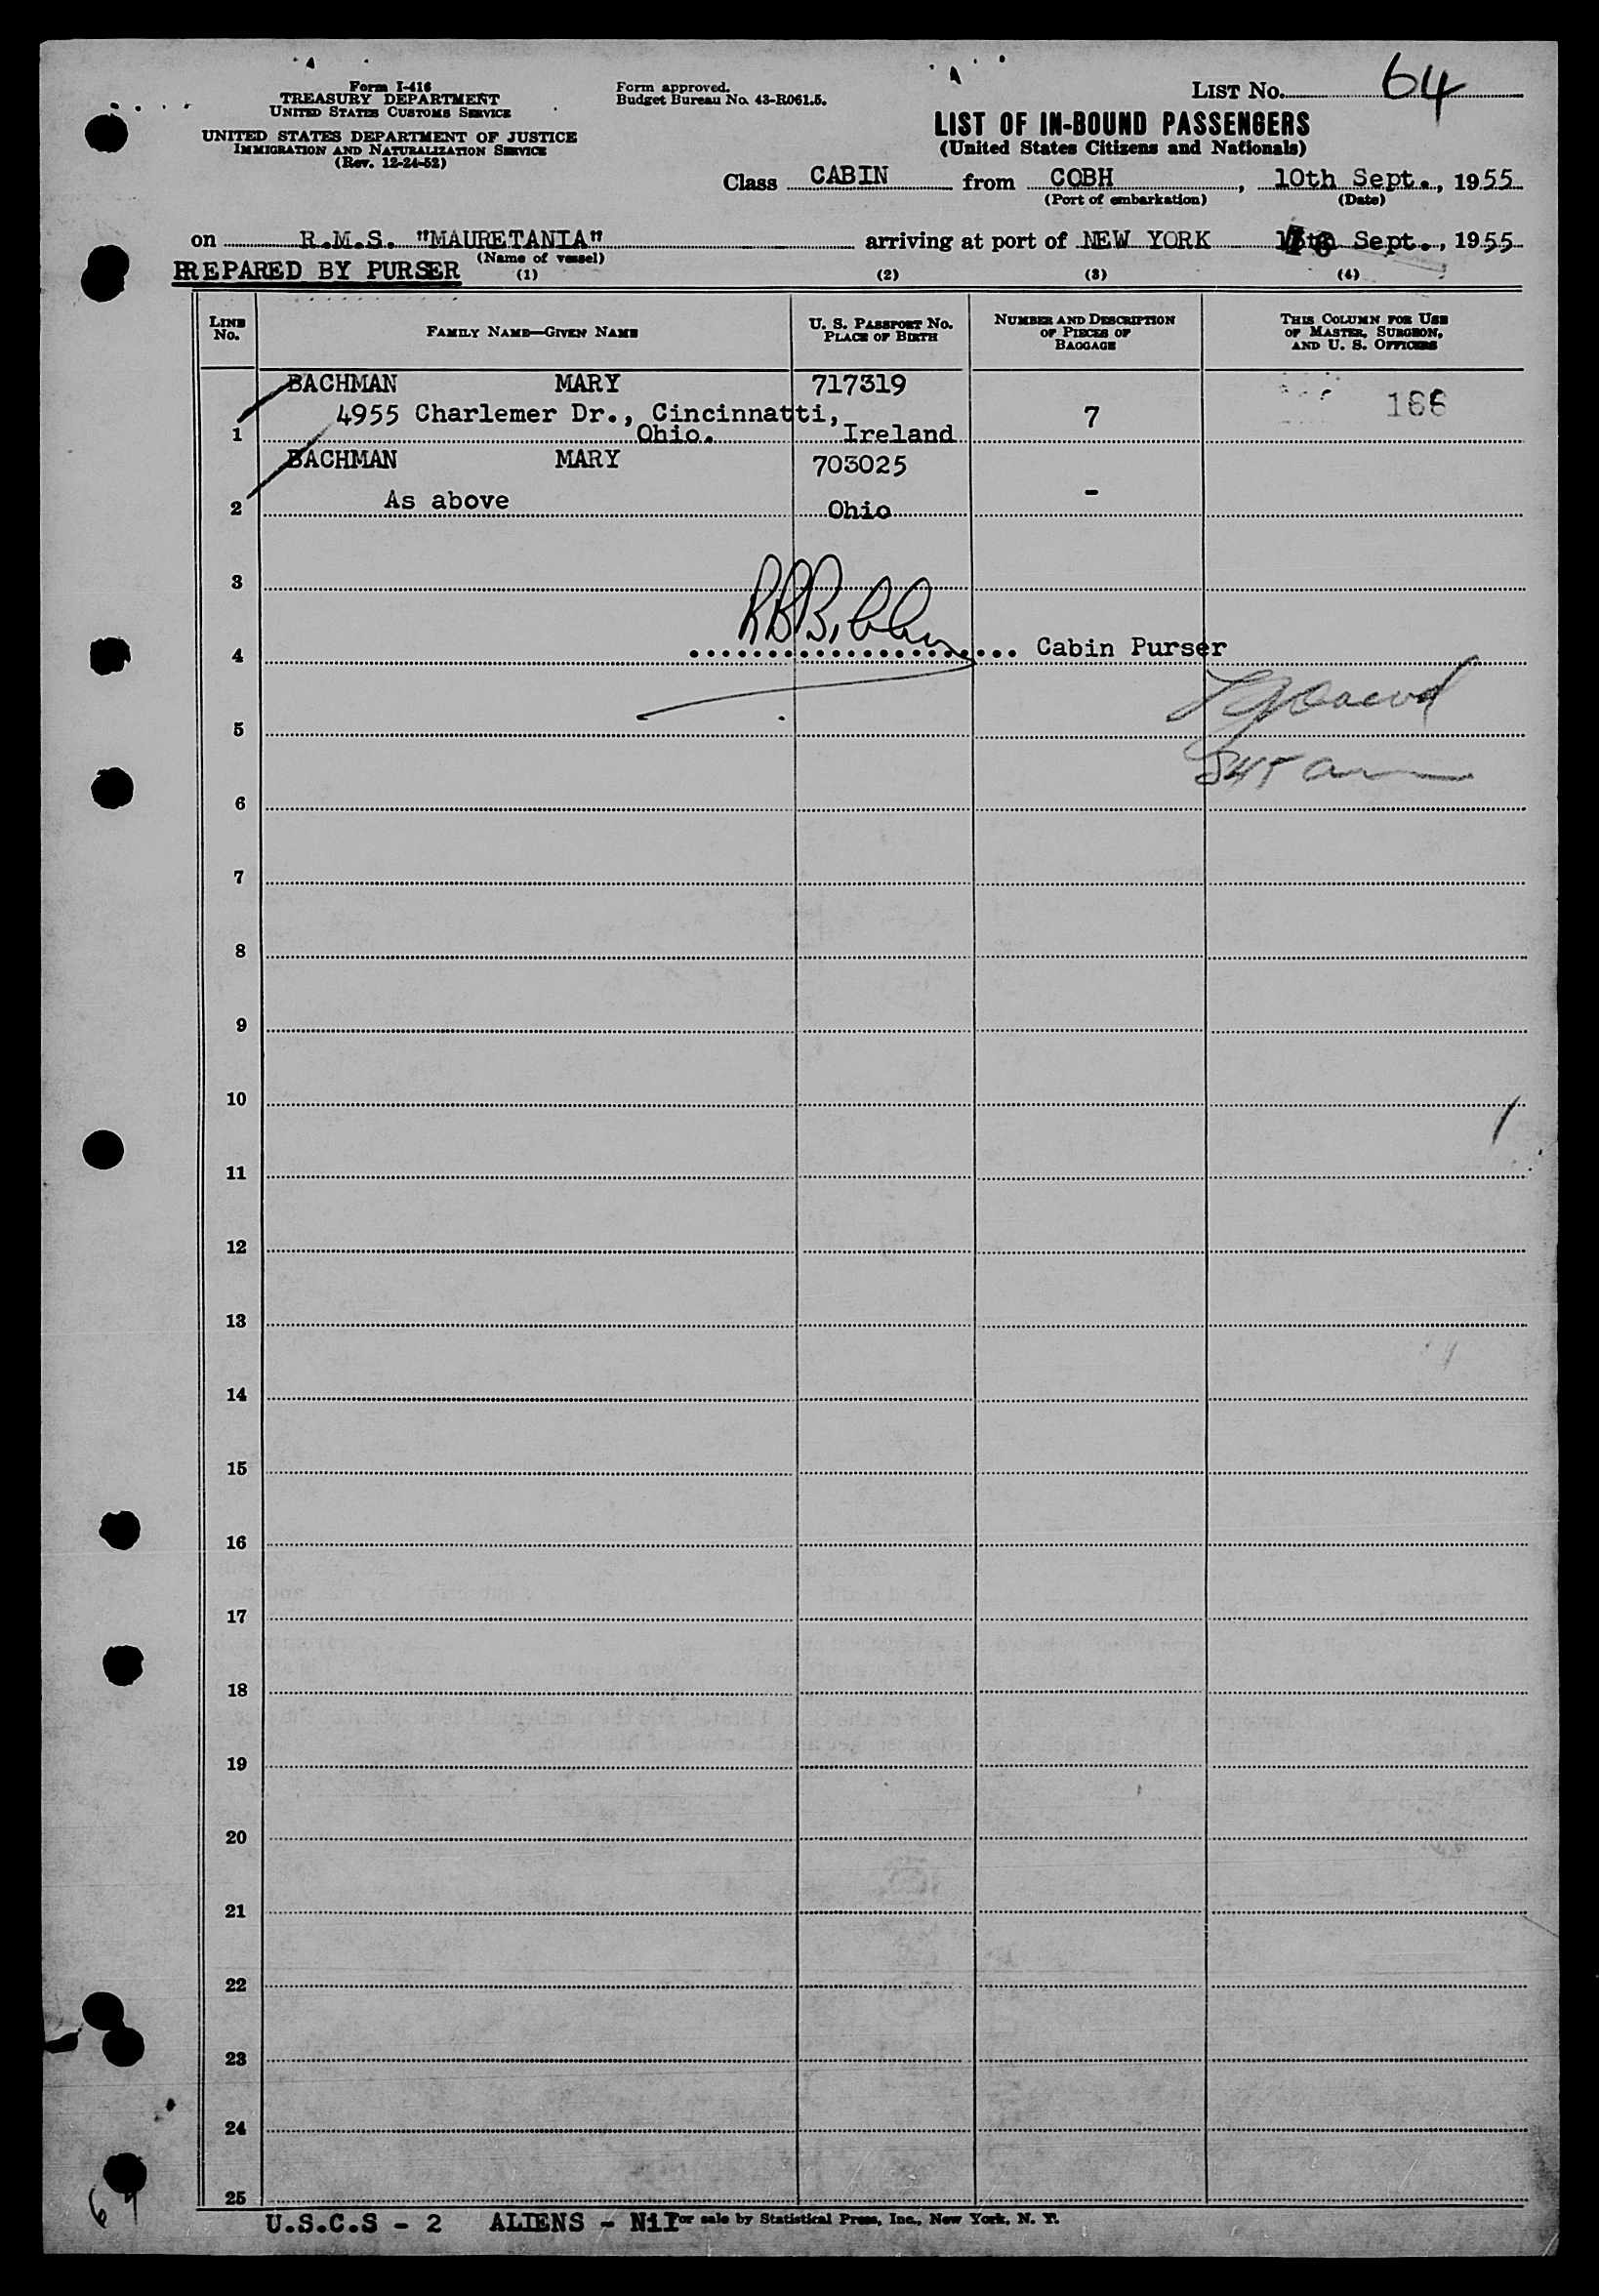 Form I-416
TREASURY DEPARTMENT
UNITED STATES CUSTOMS SERVICE
UNITED STATES DEPARTMENT OF JUSTICE
IMMIGRATION AND NATURALIZATION SERVICE
(Rev. 12-24-52)
Form approved.
Budget Bureau No. 43-R061.5.
LIST No. 64
LIST OF IN-BOUND PASSENGERS
(United States Citizens and Nationals)
Class CABIN from COBH, 10th Sept., 1955
(Port of embarkation) (Date)
on R.M.S. "MAURETANIA" arriving at port of NEW YORK 16 Sept., 1955
(Name of vessel)
PREPARED BY PURSER (1) (2) (3) (4)
LINE No. FAMILY NAME—GIVEN NAME U. S. PASSPORT No. PLACE OF BIRTH NUMBER AND DESCRIPTION OF PIECES OF BAGGAGE THIS COLUMN FOR USE OF MASTER, SURGEON, AND U. S. OFFICERS
BACHMAN MARY 717319
4955 Charlemer Dr., Cincinnatti, 7 166
1 Ohio. Ireland
BACHMAN MARY 703025
As above -
2 Ohio
3
4 Cabin Purser
5
6
7
8
9
10
11
12
13
14
15
16
17
18
19
20
21
22
23
24
25
U.S.C.S - 2 ALIENS - Nil For sale by Statistical Press, Inc., New York, N. Y.